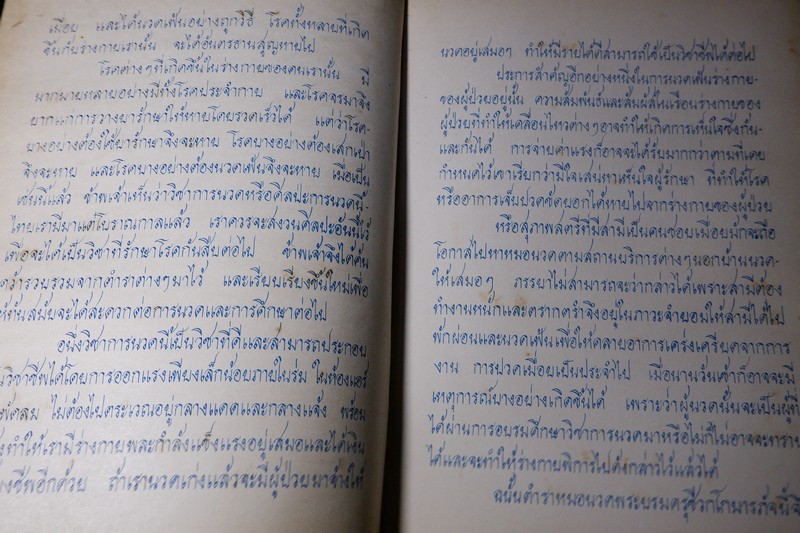 เมื่อย และได้นวดเฟ้นอย่างถูกวิธี โรคทั้งหลายที่เกิด
ขึ้นกับร่างกายเรานั้น จะได้อันตรธานสูญหายไป
โรคต่างๆที่เกิดขึ้นในร่างกายของคนเรานั้น มี
มากมายหลายอย่างมีทั้งโรคประจำกาย และโรคจรมาจึง
ยากแก่การวางยารักษาให้หายโดยรวดเร็วได้ แต่ว่าโรค-
บางอย่างต้องใช้ยารักษาจึงจะหาย โรคบางอย่างต้องเสกเป่า
จึงจะหาย และโรคบางอย่างต้องนวดเฟ้นจึงจะหาย เมื่อเป็น
เช่นนี้แล้ว ข้าพเจ้าเห็นว่าวิชาการนวดหรือศิลปะการนวดนี้-
ไทยเรามีมาแต่โบราณกาลแล้ว เราควรจะสงวนศิลปะอันนี้ไว้
เพื่อจะได้เป็นวิชาที่รักษาโรคกันสืบต่อไป ข้าพเจ้าจึงได้ค้น
คว้ารวบรวมจากตำราต่างๆมาไว้ และเรียบเรียงขึ้นใหม่เพื่อ
ให้ทันสมัยจะได้สะดวกต่อการนวดและการศึกษาต่อไป
อนึ่งวิชาการนวดนี้เป็นวิชาที่ดีและสามารถประกอบ
วิชาชีพได้โดยการออกแรงเพียงเล็กน้อยภายในร่ม ในห้องแอร์
พัดลม ไม่ต้องไปตระเวณอยู่กลางแดดและกลางแจ้ง พร้อม
ทำให้เรามีร่างกายพละกำลังแข็งแรงอยู่เสมอและได้เงิน
ชีพอีกด้วย ถ้าเรานวดเก่งแล้วจะมีผู้ป่วยมาจ้างให้
นวดอยู่เสมอๆ ทำให้มีรายได้ดีสามารถใช้เป็นวิชาชีพได้ต่อไป
ประการสำคัญอีกอย่างหนึ่งในการนวดเฟ้นร่างกาย-
ของผู้ป่วยอยู่นั้น ความสัมพันธ์และสัมผัสในเรือนร่างกายของ
ผู้ป่วยที่ทำให้เคลื่อนไหวต่างๆอาจทำให้เกิดการเห็นใจซึ่งกัน-
และกันได้ การจ่ายค่าแรงก็อาจจะได้รับมากกว่าตามที่เคย
กำหนดไว้เขาเรียกว่ามีใจเสน่หาเห็นใจผู้รักษา ที่ทำให้โรค
หรืออาการเจ็บปวดขัดยอกได้หายไปจากร่างกายของผู้ป่วย
หรือสุภาพสตรีที่มีสามีเป็นคนชอบเมื่อยมักจะถือ
โอกาสไปหาหมอนวดตามสถานบริการต่างๆนอกบ้านนวด-
ให้เสมอๆ ภรรยาไม่สามารถจะว่ากล่าวได้เพราะสามีต้อง
ทำงานหนักและตรากตรำจึงอยู่ในภาวะจำยอมให้สามีได้ไป
พักผ่อนและนวดเฟ้นเพื่อให้คลายอาการเคร่งเครียดจากการ
งาน การปวดเมื่อยเป็นประจำไป เมื่อนานวันเข้าก็อาจจะมี
เหตุการณ์บางอย่างเกิดขึ้นได้ เพราะว่าผู้นวดนั้นจะเป็นผู้ที่
ได้ผ่านการอบรมศึกษาวิชาการนวดมาหรือไม่ก็ไม่อาจจะทราบ
ได้และจะทำให้ร่างกายพิการไปดังกล่าวไว้แล้วได้
ฉนั้นตำราหมอนวดพระบรมครูชีวกโกมารภัจน์นี้